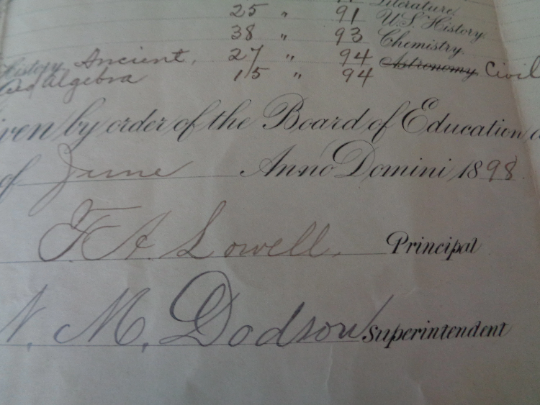 Literature
25 " 91 U.S History
38 " 93 Chemistry
History, Ancient, 27 " 94 Astronomy Civil
Algebra 15 " 94
iven by order of the Board of Education
of June Anno Domini, 1898
F. A. Lowell. Principal
N. M. Dodson Superintendent